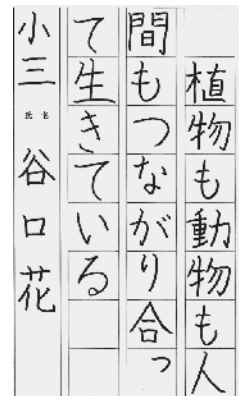 植物も動物も人
間もつながり合っ
て生きている
小三 氏名 谷口花